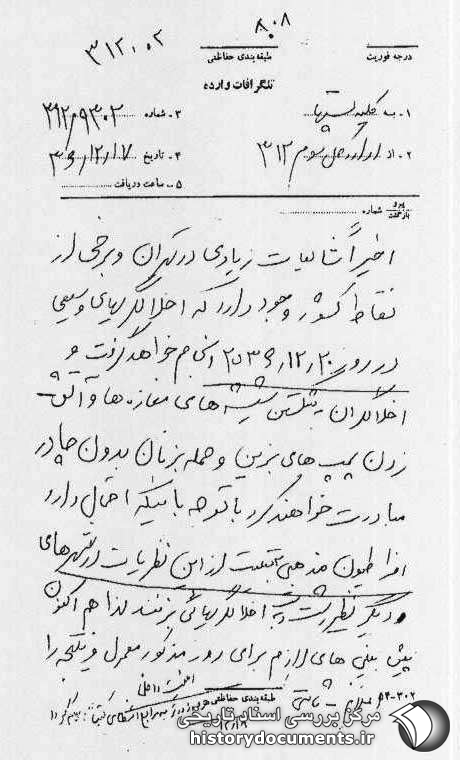 ۸۰۸
۳۱۲،۰۲
درجه فوریت
طبقه‌بندی حفاظتی
تلگرافات وارده
۱ـ به کلیه
۲ـ از اداره کل سوم ۳۱۲
۳ـ شماره
۴ـ تاریخ ۳۶/۱۲/۱۷
۵ـ ساعت دریافت
پیرو
بازگشت شماره
اخیراً شایعات زیادی در تهران و برخی از
نقاط کشور وجود دارد که اخلالگریهای وسیعی
در روز ۲۰/۱۲/۲۵۳۶ انجام خواهد گرفت و
اخلالگران به شکستن شیشه‌های مغازه‌ها و آتش
زدن پمپ‌های بنزین و حمله به زنان بدون چادر
مبادرت خواهند کرد با توجه باینکه احتمال دارد
افراطیون مذهبی به تبعیت از این نظریات در شهرهای
دیگر نظیر رشت به اخلالگریهائی بزنند لذا هم اکنون
پیش بینی های لازم برای روز مذکور معمول و نتیجه را
طبقه‌بندی حفاظتی
مرکز بررسی اسناد تاریخی
historydocuments.ir